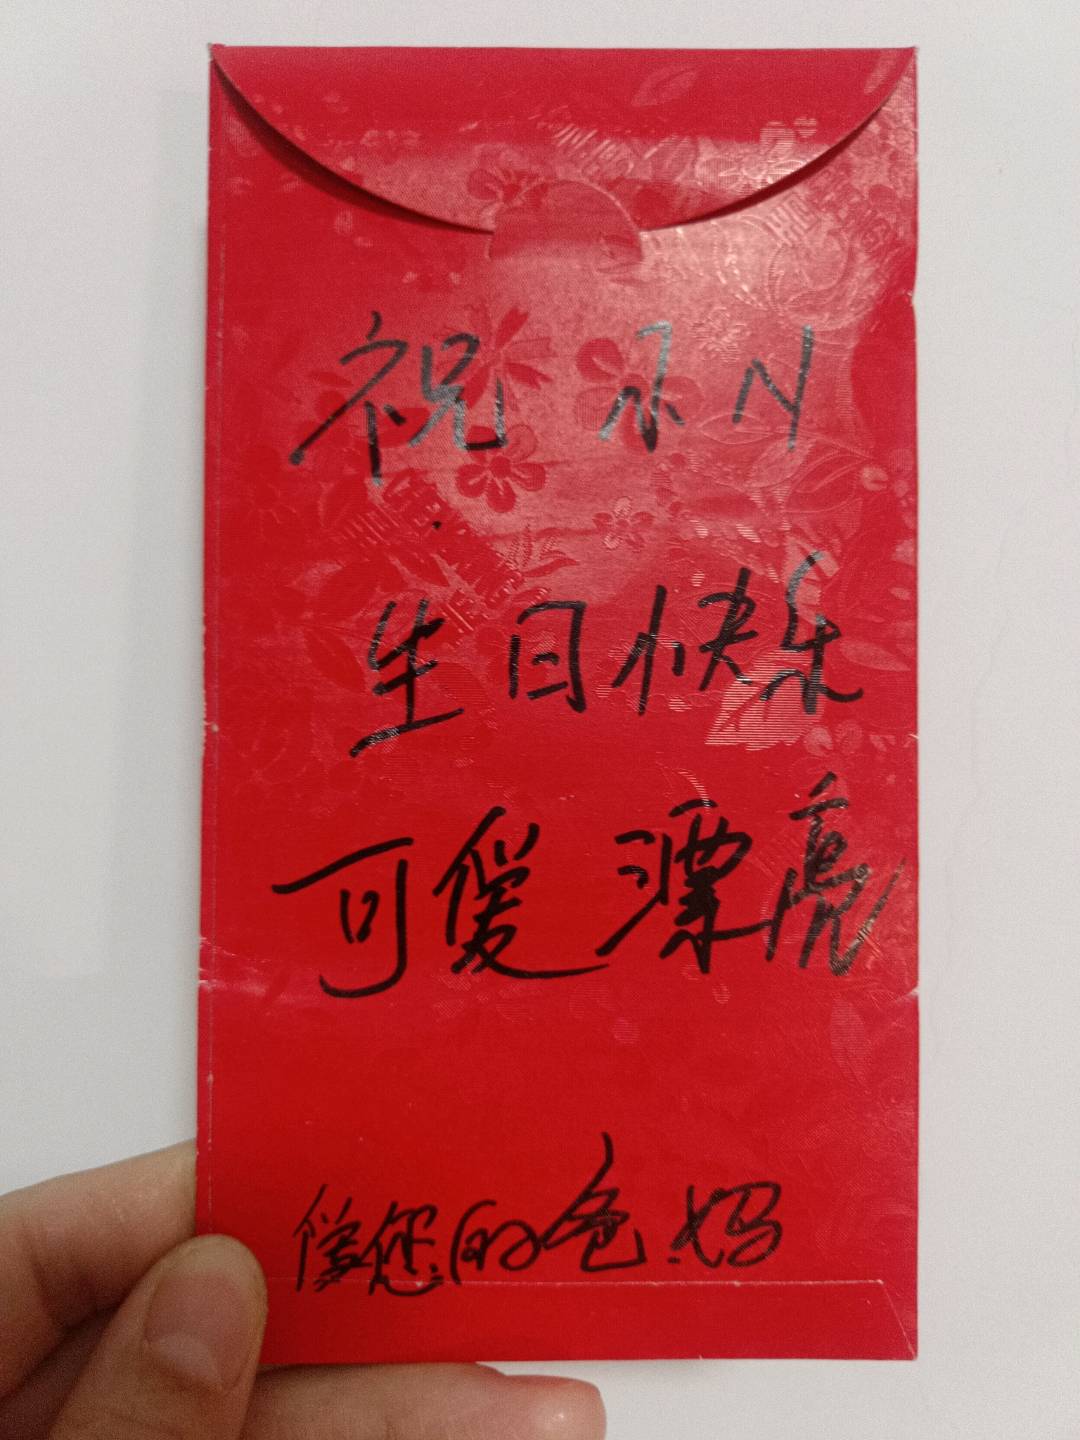 祝
生日快乐
可爱 漂亮
爱您的爸妈